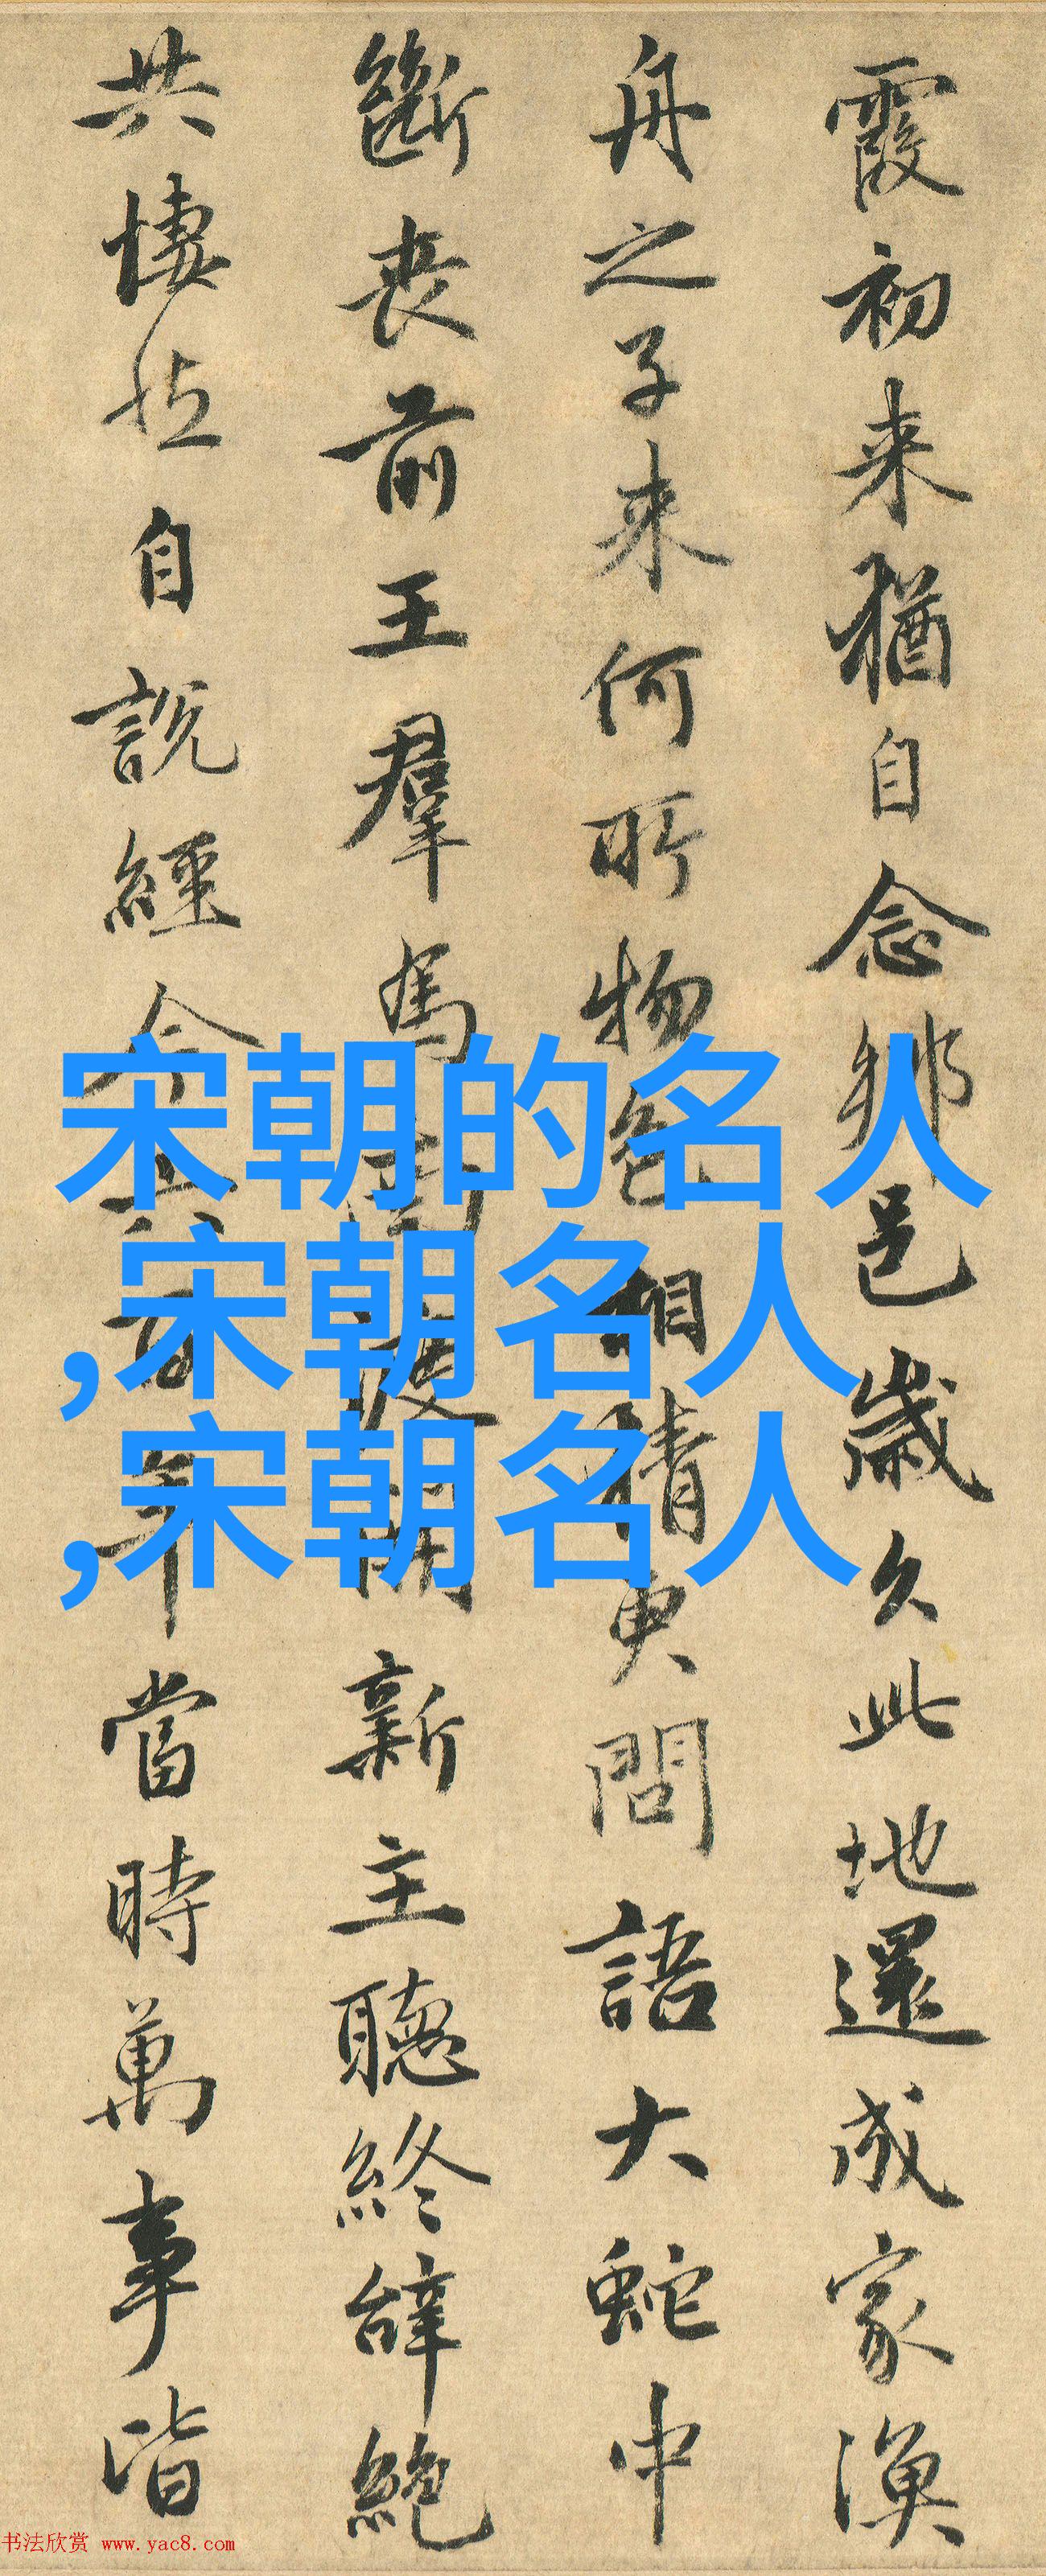 霞初来猶自念鄉邑歲久此地還成家漁
舟之子来何所物色相猜更問語大蛇中
斷喪前王羣馬渡開新主聽終辭絕
共悽然自說經今六百年當時萬事皆
宋朝的名人
,宋朝名人
,宋朝名人
书法欣赏 www.yac8.com